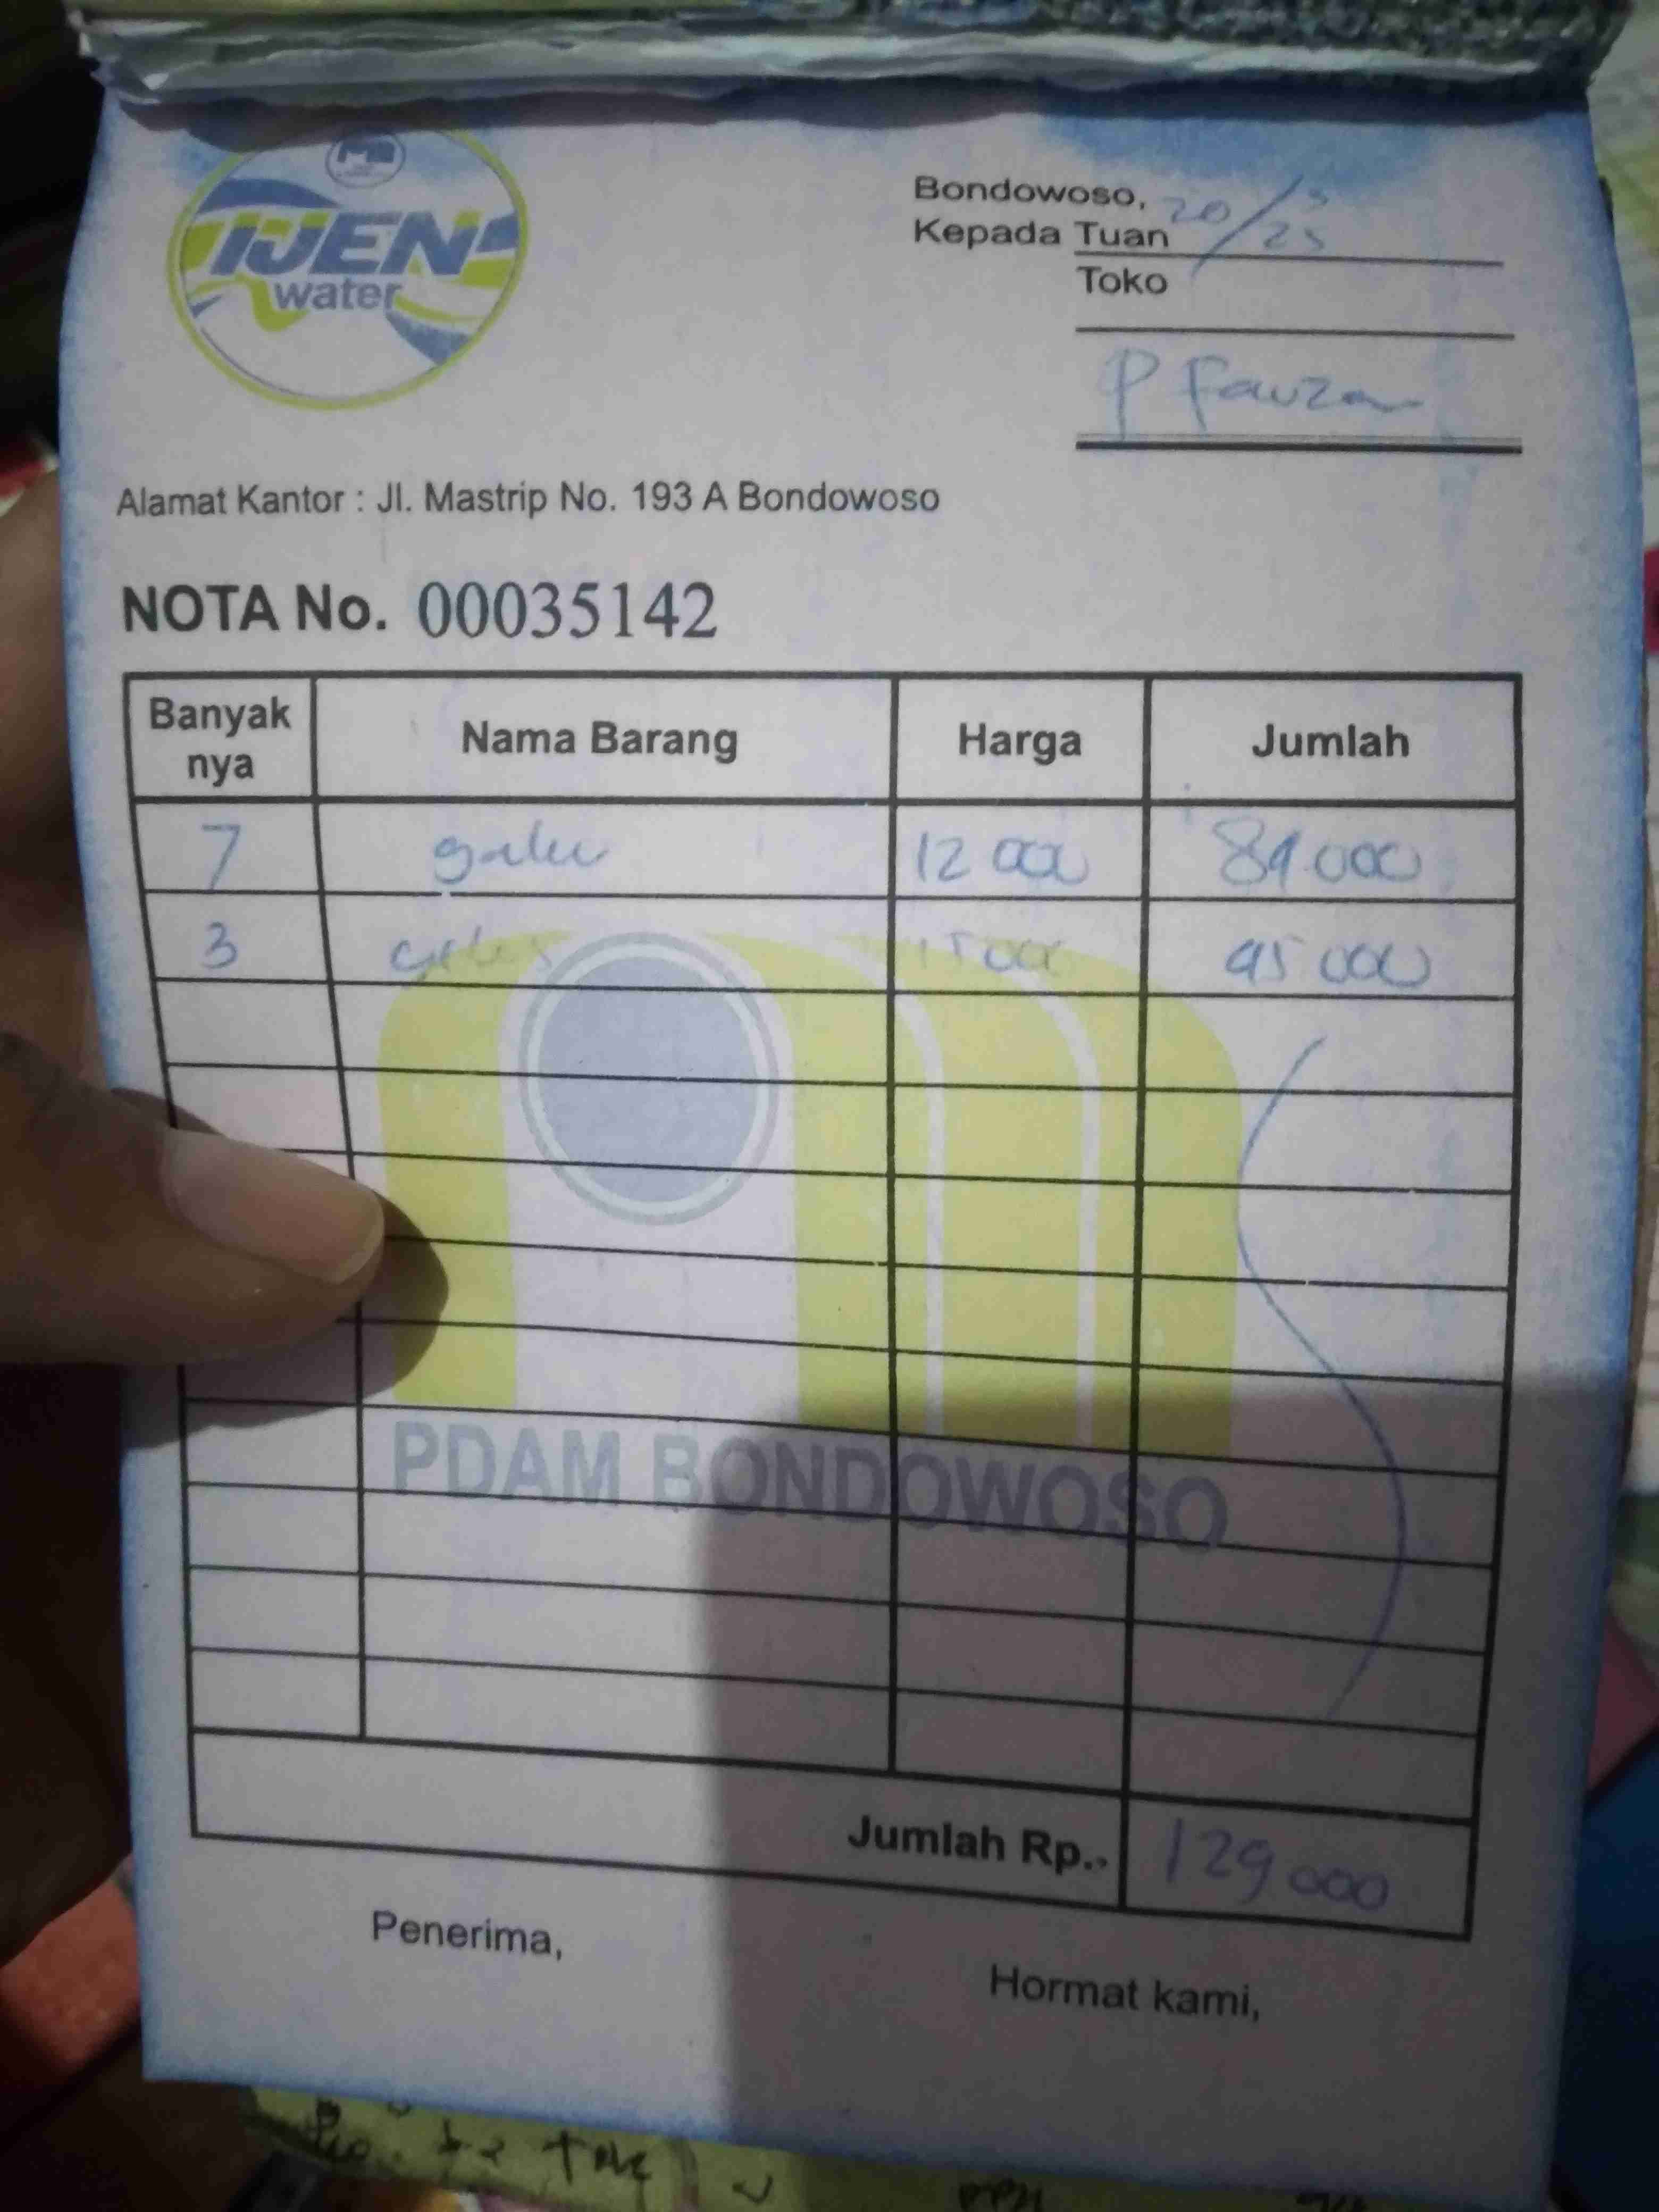 IJEN
water
Bondowoso, 20/3
Kepada Tuan 25
Toko
P Fauzan
Alamat Kantor : Jl. Mastrip No. 193 A Bondowoso
NOTA No. 00035142
Banyak nya Nama Barang Harga Jumlah
7 galu 12 000 84.000
3 15 000 45 000
PDAM BONDOWOSO
Jumlah Rp.- 129 000
Penerima,
Hormat kami,